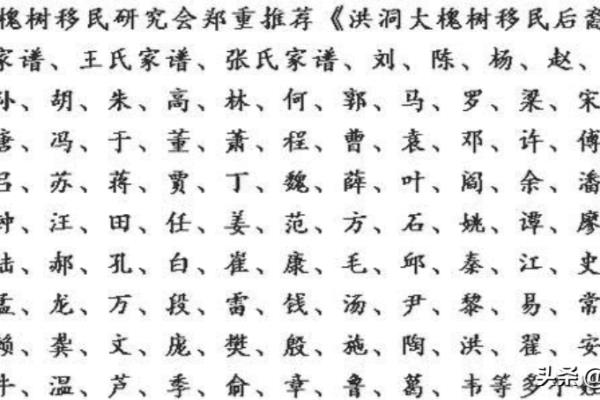 槐树移民研究会郑重推荐《洪洞大槐树移民后裔
家谱、王氏家谱、张氏家谱、刘、陈、杨、赵、
孙、胡、朱、高、林、何、郭、马、罗、梁、宋
唐、冯、于、董、萧、程、曹、袁、邓、许、傅
吕、苏、蒋、贾、丁、魏、薛、叶、阎、余、潘
钟、汪、田、任、姜、范、方、石、姚、谭、廖
陆、郝、孔、白、崔、康、毛、邱、秦、江、史
孟、龙、万、段、雷、钱、汤、尹、黎、易、常
赖、龚、文、庞、樊、殷、施、陶、洪、翟、安
牛、温、芦、季、俞、章、鲁、葛、韦等多个
头条 @